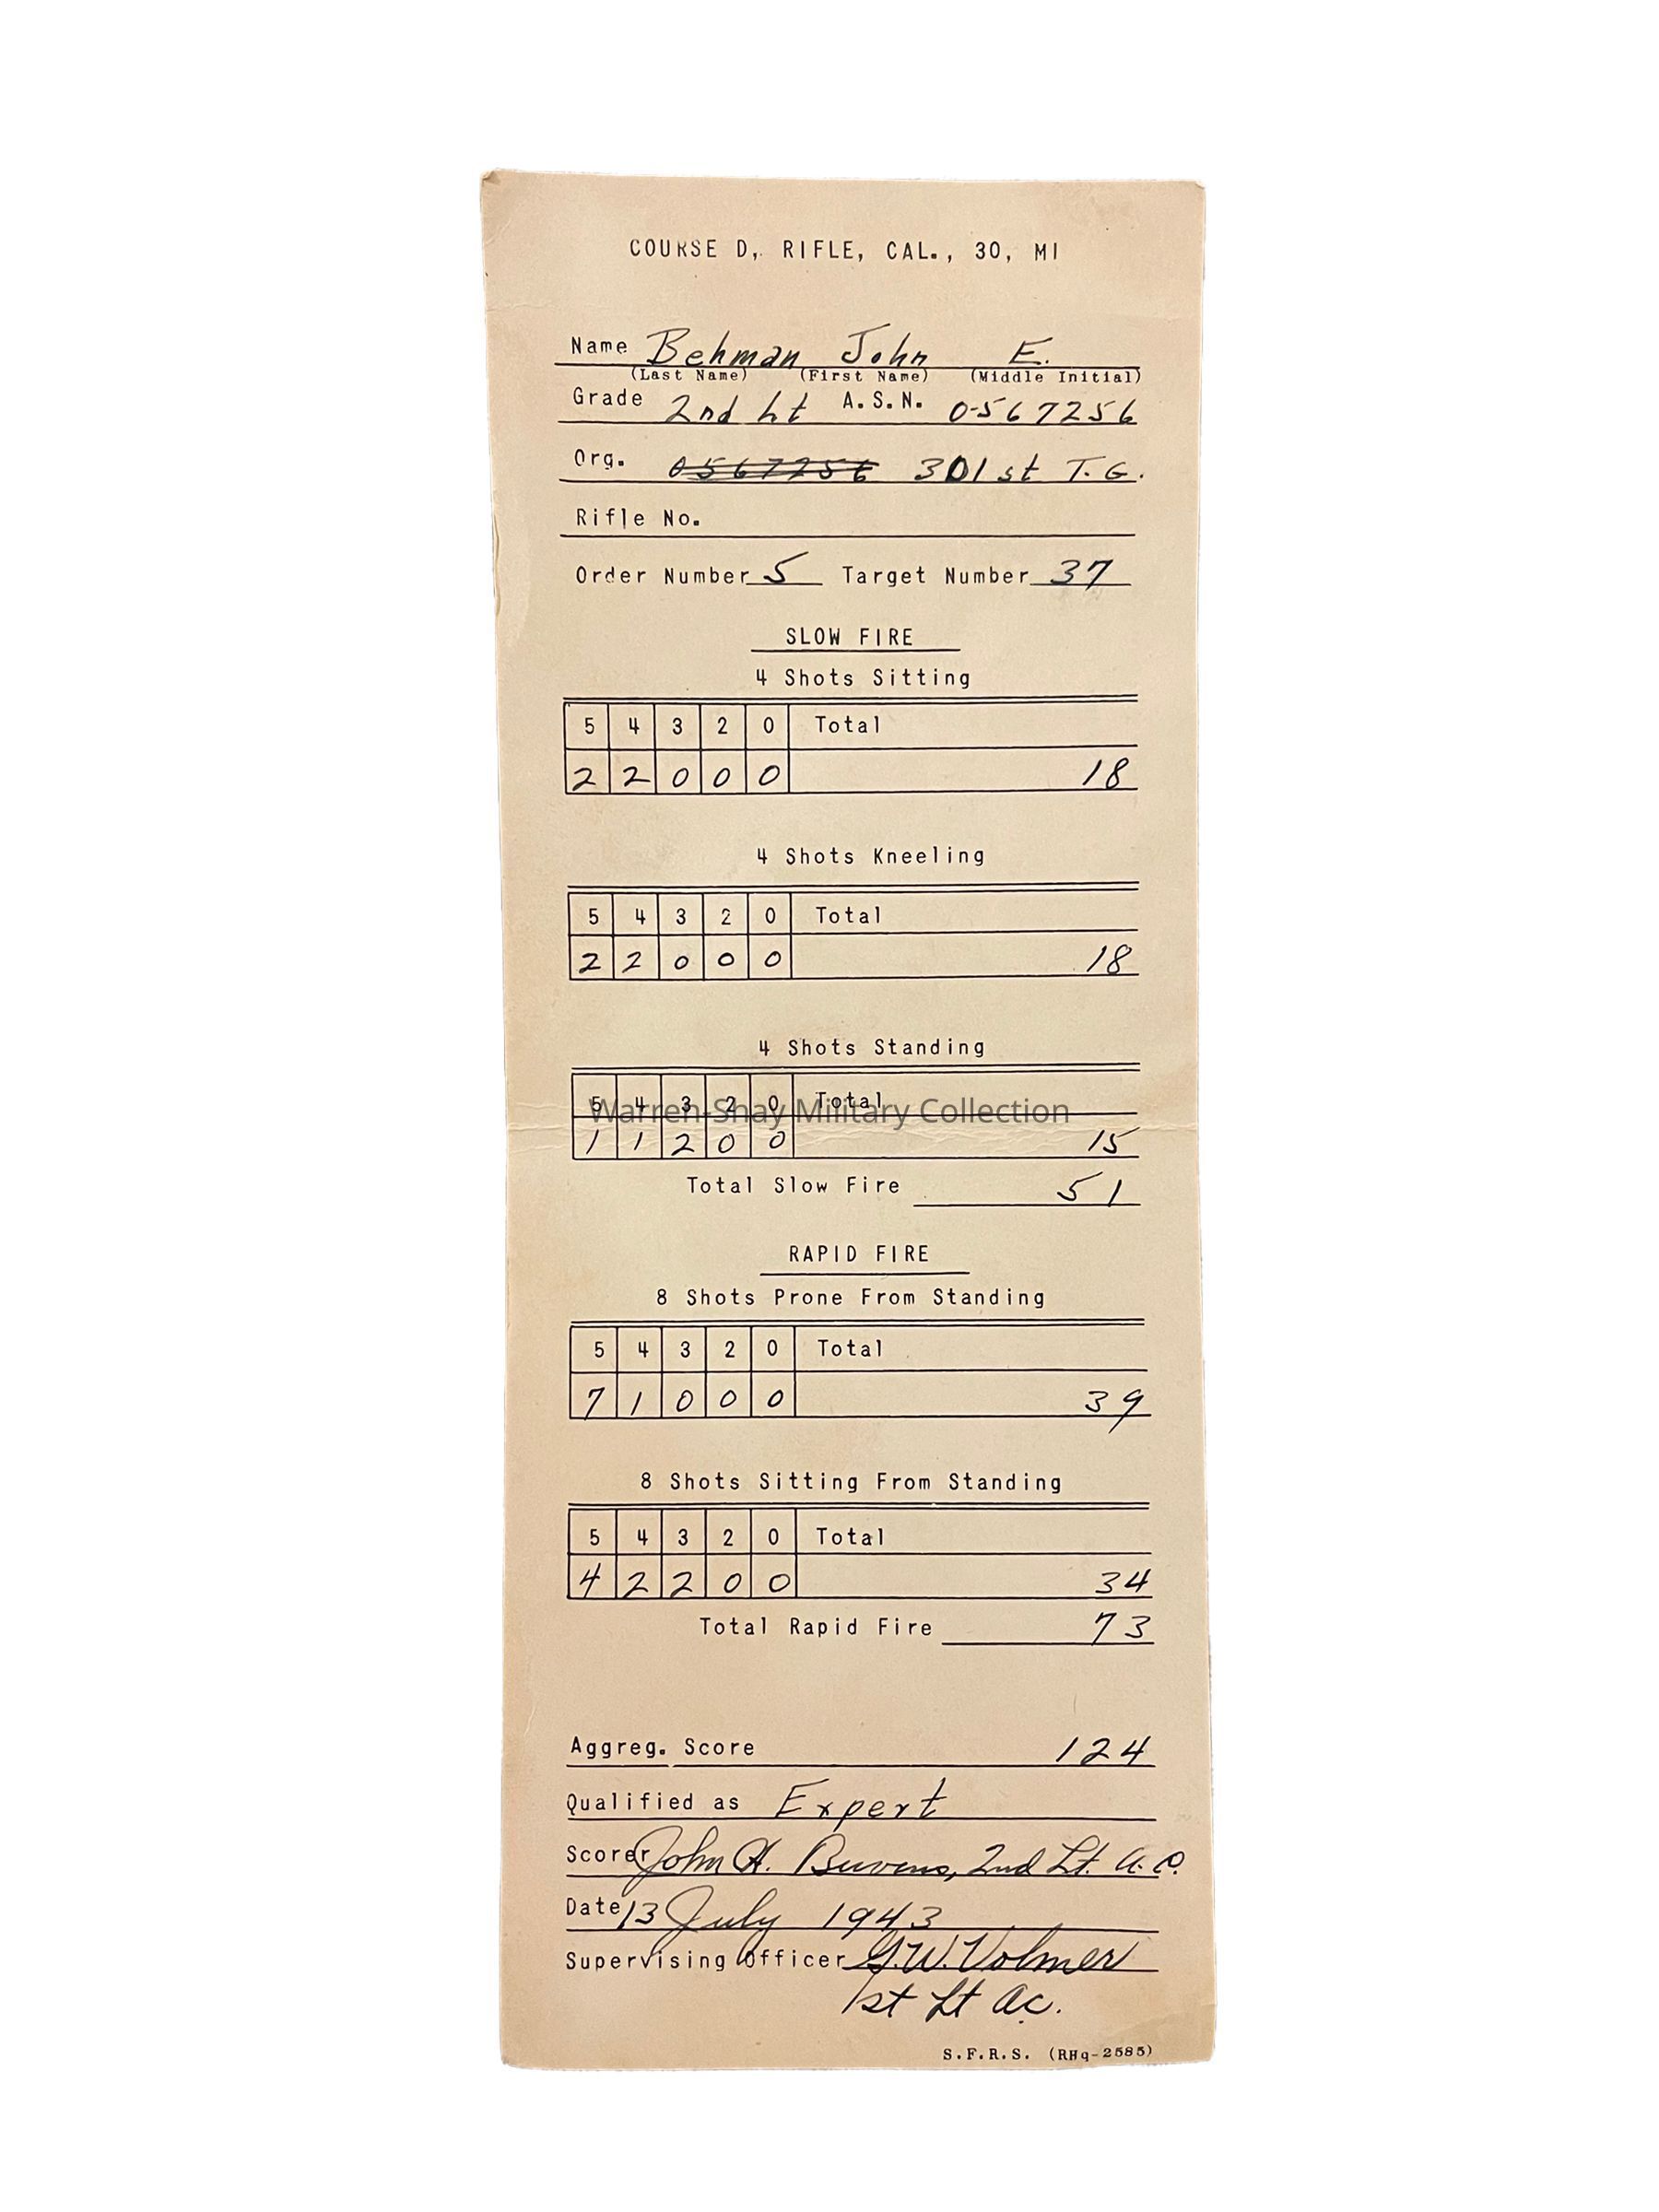 COURSE D, RIFLE, CAL., 30, MI
Name Behman John E.
(Last Name) (First Name) (Middle Initial)
Grade 2nd Lt A.S.N. 0-567256
Org. 0567256 301st T.G.
Rifle No.
Order Number 5 Target Number 37
SLOW FIRE
4 Shots Sitting
5 4 3 2 0 Total
2 2 0 0 0 18
4 Shots Kneeling
5 4 3 2 0 Total
2 2 0 0 0 18
4 Shots Standing
5 4 3 2 0 Total
Warren-Shay Military Collection
1 1 2 0 0 15
Total Slow Fire 51
RAPID FIRE
8 Shots Prone From Standing
5 4 3 2 0 Total
7 1 0 0 0 39
8 Shots Sitting From Standing
5 4 3 2 0 Total
4 2 2 0 0 34
Total Rapid Fire 73
Aggreg. Score 124
Qualified as Expert
Scorer John H. 2nd Lt. A.C.
Date 13 July 1943
Supervising Officer G.W. Volmer
1st Lt AC.
S.F.R.S. (RHq-2585)